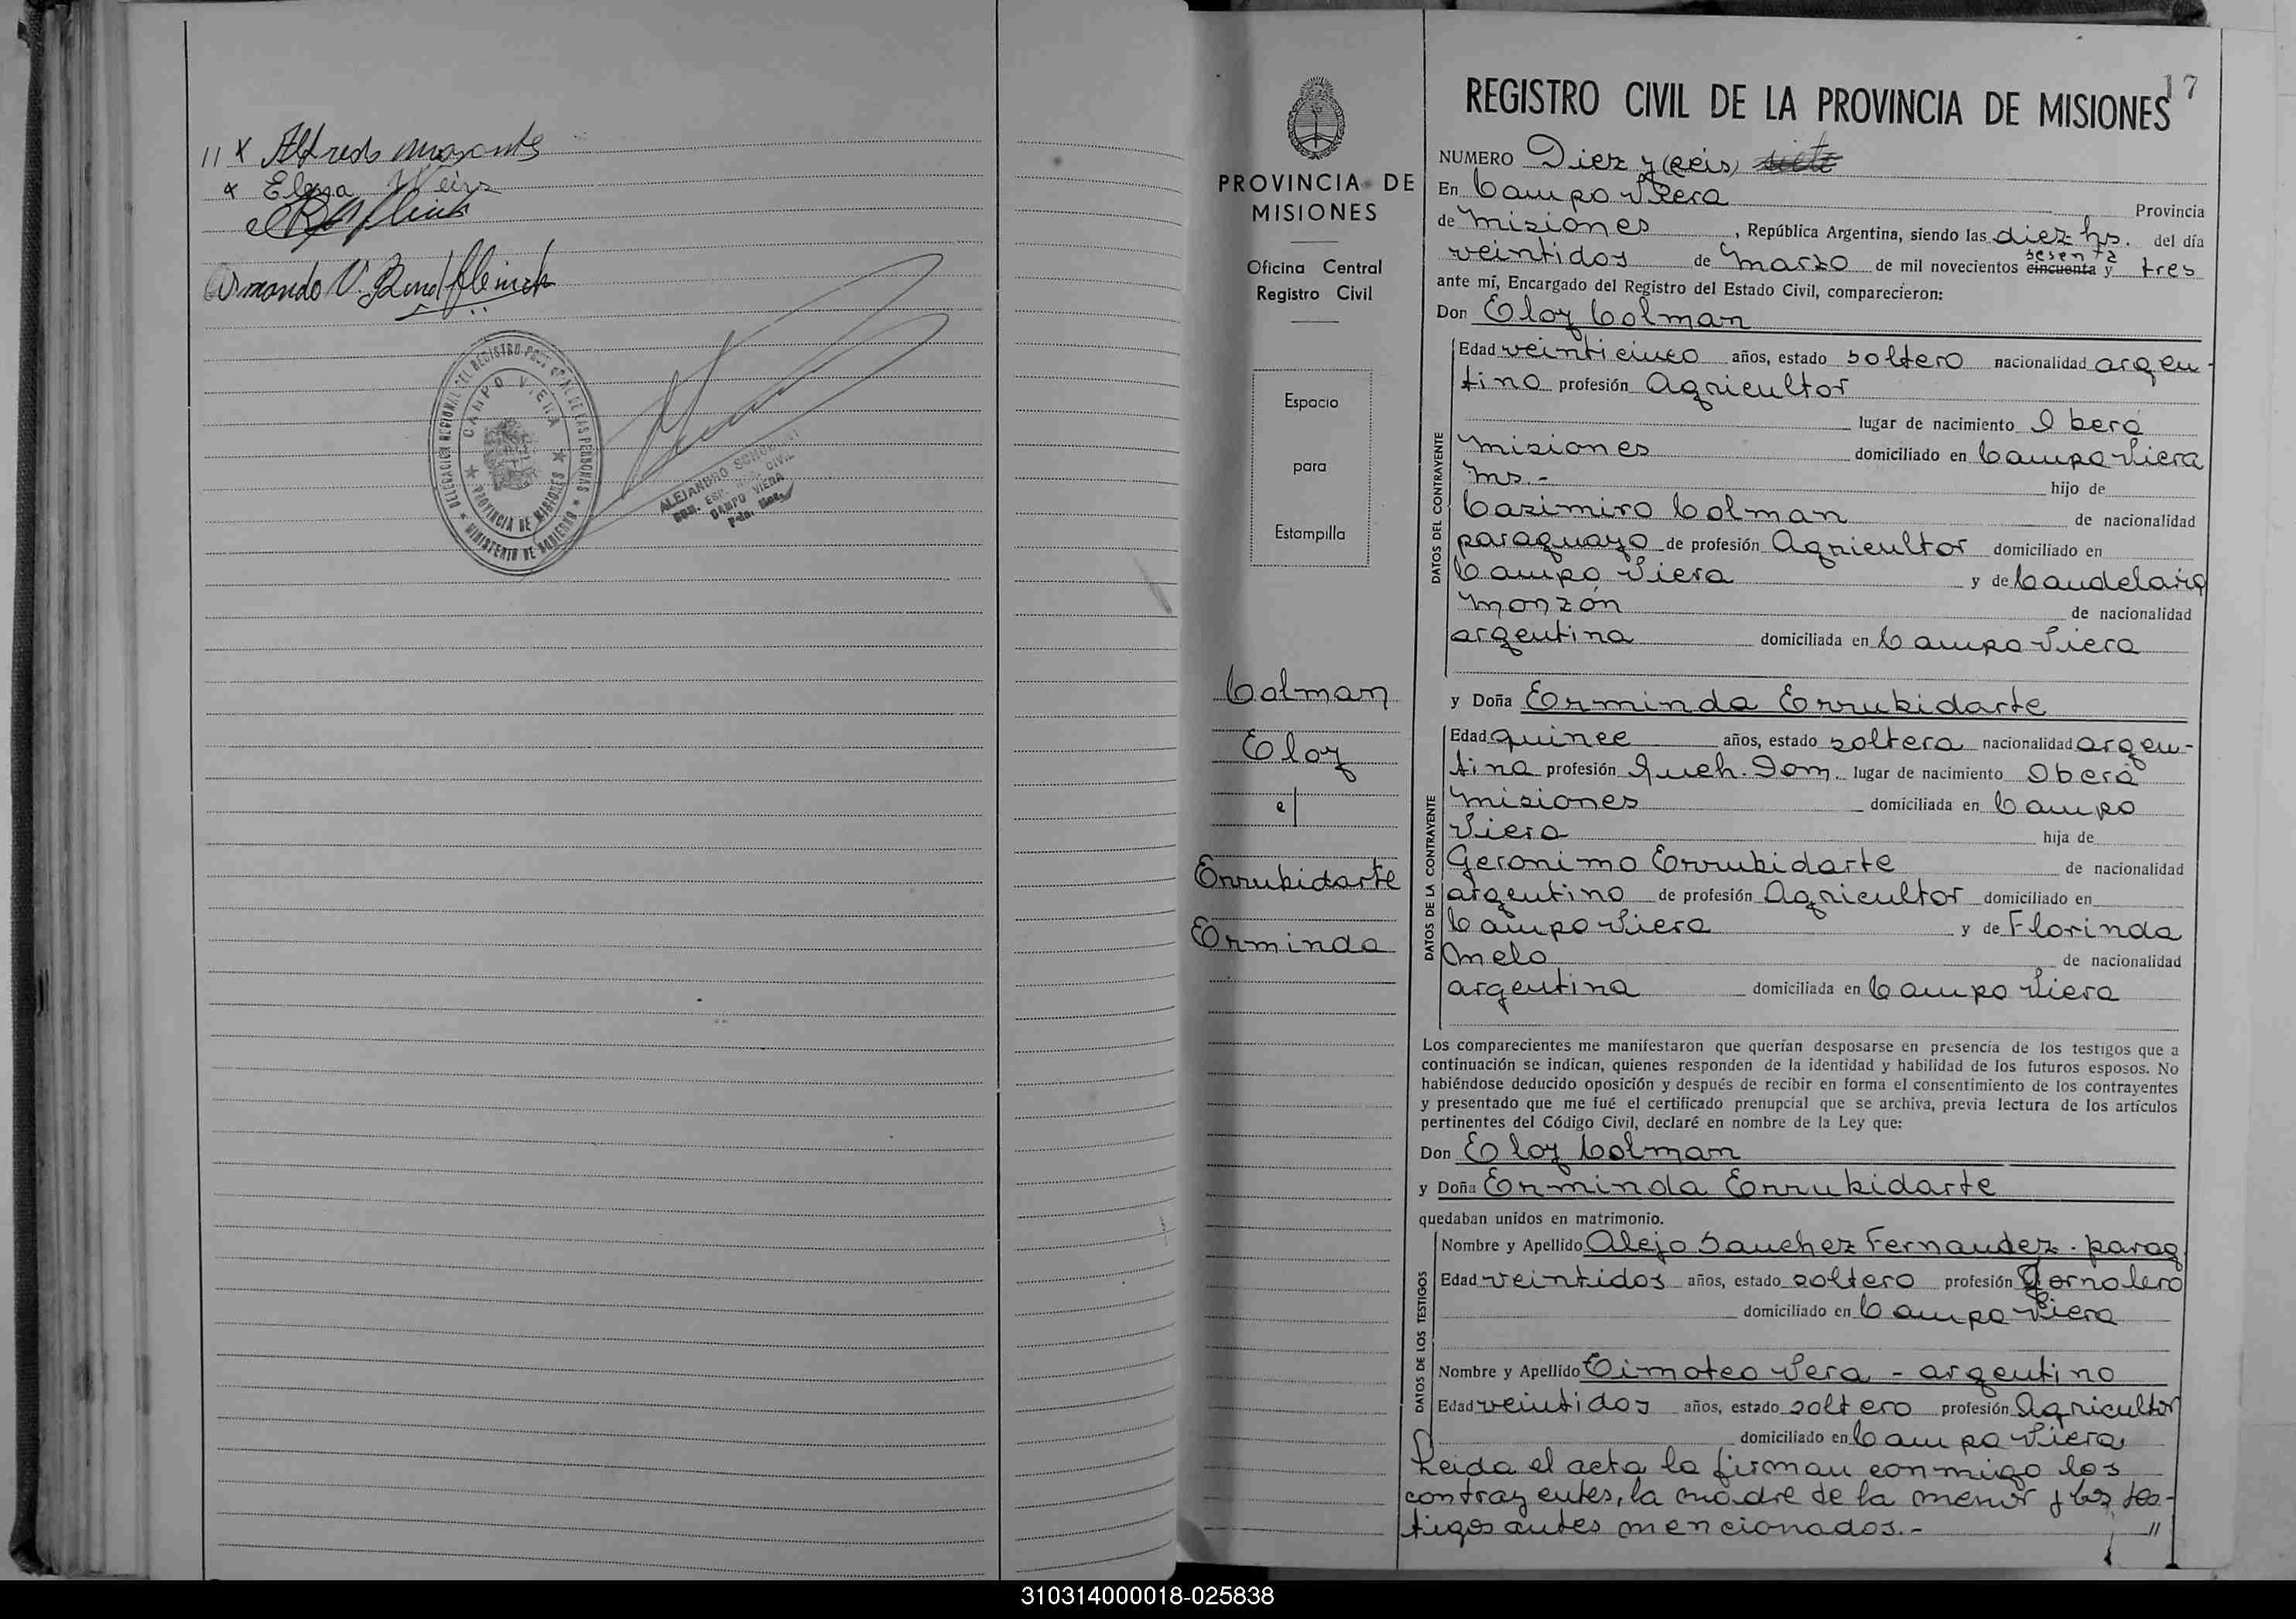 11 X Alfredo
x Elena Weirs
Armando V.
DELEGACION REGIONAL DEL REGISTRO PROVINCIAL DE LAS PERSONAS
CAMPO VIERA
PROVINCIA DE MISIONES
MINISTERIO DE GOBIERNO
ALEJANDRO
CIVIL
CAMPO VIERA
PROVINCIA DE
MISIONES
Oficina Central
Registro Civil
Espacio
para
Estampilla
Colman
Eloy
c/
Errubidarte
Erminda
17
REGISTRO CIVIL DE LA PROVINCIA DE MISIONES
NUMERO Diez y (seis) siete
En Campo Viera Provincia
de Misiones, República Argentina, siendo las diez hs. del día
sesenta
veintidos de Marzo de mil novecientos cincuenta y tres
ante mí, Encargado del Registro del Estado Civil, comparecieron:
Don Eloy Colman
DATOS DEL CONTRAYENTE
Edad veinticinco años, estado soltero nacionalidad argen-
tino profesión Agricultor
lugar de nacimiento Oberá
Misiones domiciliado en Campo Viera
Ms.- hijo de
Casimiro Colman de nacionalidad
paraguayo de profesión Agricultor domiciliado en
Campo Viera y de Candelaria
Monzón de nacionalidad
argentina domiciliada en Campo Viera
y Doña Erminda Errubidarte
DATOS DE LA CONTRAYENTE
Edad quince años, estado soltera nacionalidad argen-
tina profesión Queh. Dom. lugar de nacimiento Oberá
Misiones domiciliada en Campo
Viera hija de
Geronimo Errubidarte de nacionalidad
argentino de profesión Agricultor domiciliado en
Campo Viera y de Florinda
Melo de nacionalidad
argentina domiciliada en Campo Viera
Los comparecientes me manifestaron que querían desposarse en presencia de los testigos que a
continuación se indican, quienes responden de la identidad y habilidad de los futuros esposos. No
habiéndose deducido oposición y después de recibir en forma el consentimiento de los contrayentes
y presentado que me fué el certificado prenupcial que se archiva, previa lectura de los artículos
pertinentes del Código Civil, declaré en nombre de la Ley que:
Don Eloy Colman
y Doña Erminda Errubidarte
quedaban unidos en matrimonio.
DATOS DE LOS TESTIGOS
Nombre y Apellido Alejo Sanchez Fernandez - parag
Edad veintidos años, estado soltero profesión Jornalero
domiciliado en Campo Viera
Nombre y Apellido Timoteo Vera - argentino
Edad veintidos años, estado soltero profesión Agricultor
domiciliado en Campo Viera
Leida el acta la firman conmigo los
contrayentes, la madre de la menor y los tes-
tigos antes mencionados.- //
310314000018-025838